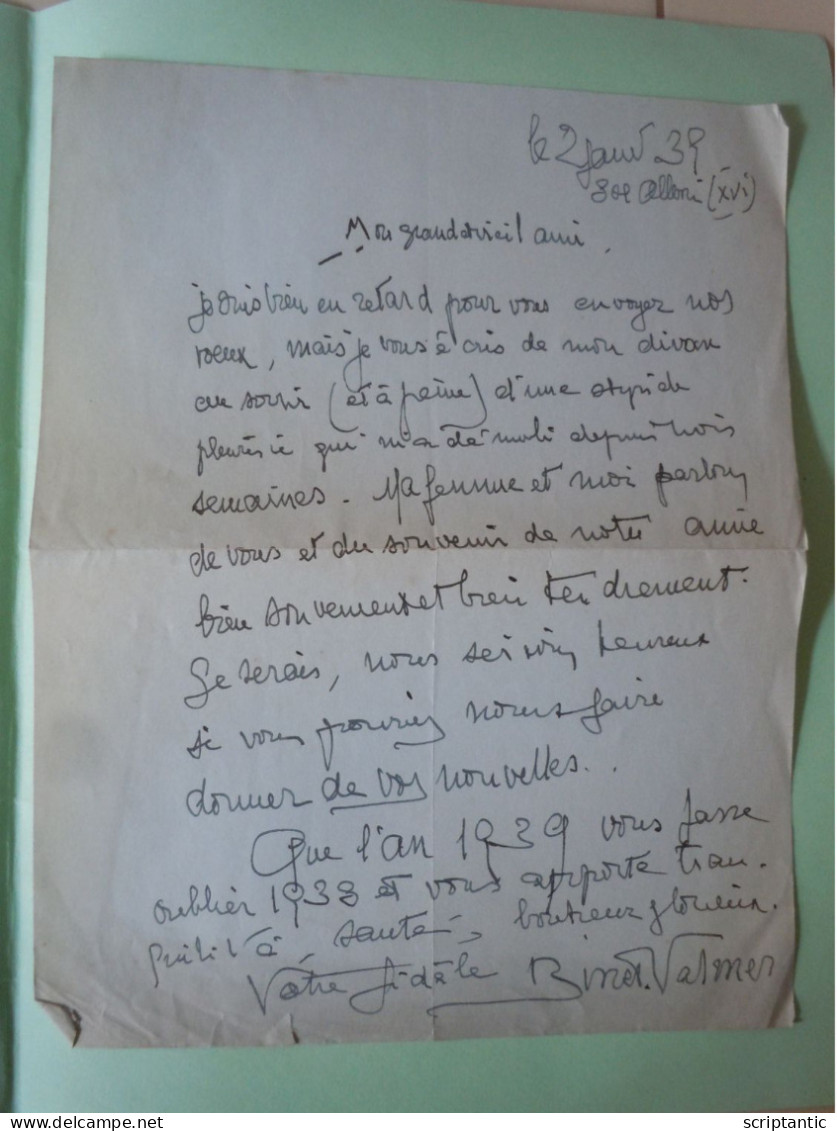 le 2 janv 39
(XVI)
Mon grand et vieil ami,
je suis bien en retard pour vous envoyer nos
voeux, mais je vous écris de mon divan
au sortir (et à peine) d'une stupide
pleurésie qui m'a démoli depuis trois
semaines. Ma femme et moi parlons
de vous et du souvenir de notre amie
bien souvement et bien tendrement.
Je serais, nous serions heureux
si vous pouviez nous faire
donner de vos nouvelles..
Que l'an 1939 vous fasse
oublier 1938 et vous apporte tran-
quillité, santé, bonheur glorieux.
Votre fidèle Binet-Valmer
www.delcampe.net
scriptantic